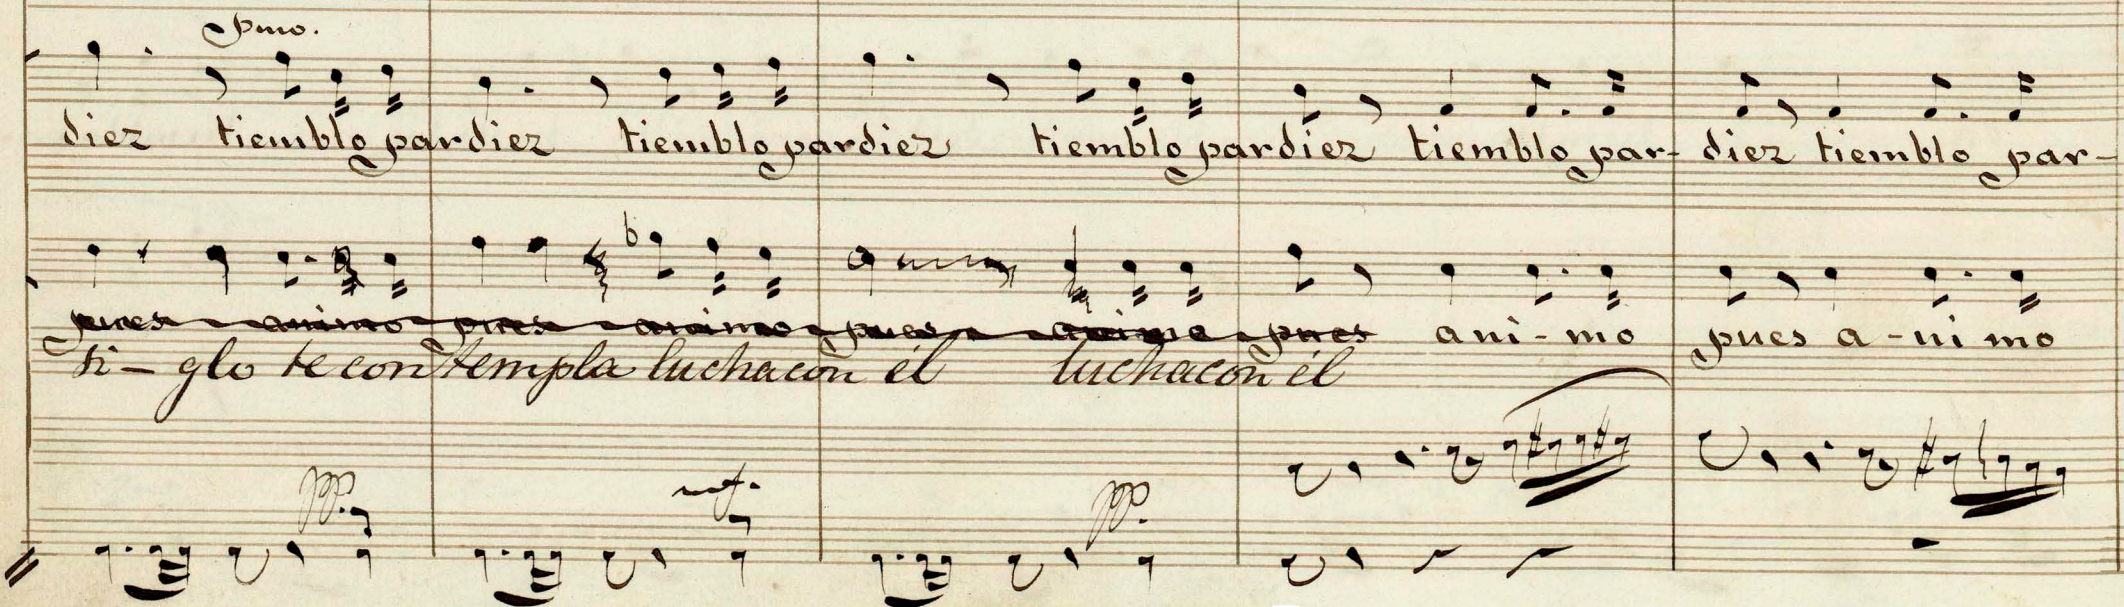 pmo.
diez tiemblo pardiez tiemblo pardiez tiemblo pardiez tiemblo par- diez tiemblo par-
pues animo pues animo pues animo pues ani-mo pues a-ni mo
si-glo te contempla lucha con él lucha con él
pp. mf. pp.